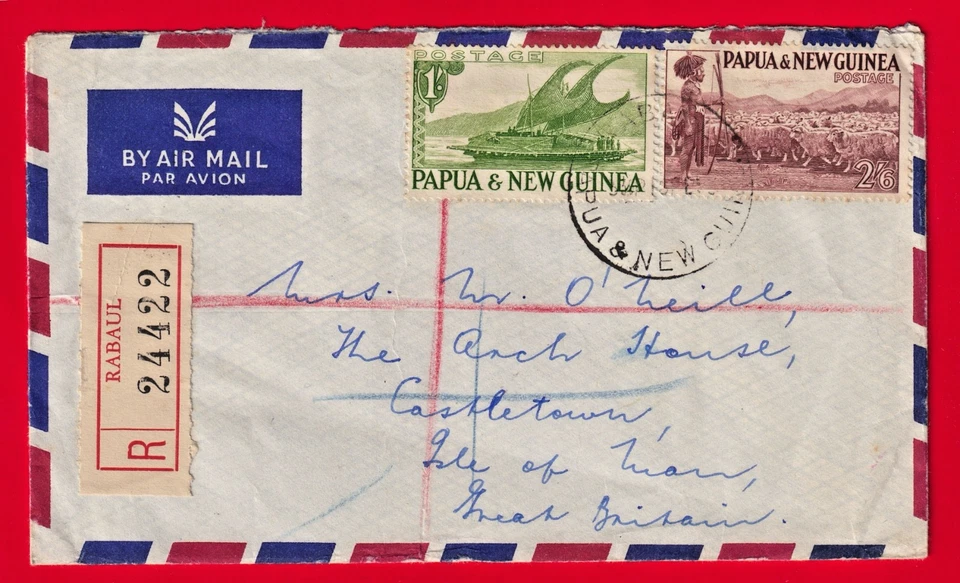 BY AIR MAIL
PAR AVION
POSTAGE
1/-
PAPUA & NEW GUINEA
PAPUA & NEW GUINEA
POSTAGE
2/6
PAPUA & NEW GUIN
R
RABAUL
24422
Mrs. W. O'Neill,
The Arch House,
Castletown,
Isle of Man,
Great Britain.